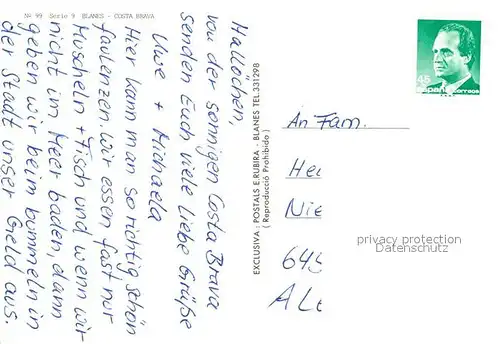 No 99 Serie 9 BLANES - COSTA BRAVA
Hallöchen,
von der sonnigen Costa Brava
senden Euch viele liebe Grüße
Uwe + Michaela
Hier kann man so richtig schön
faulenzen, wir essen fast nur
Muscheln + Fisch und wenn wir
nicht im Meer baden, dann
geben wir beim bummeln in
der Stadt unser Geld aus.
EXCLUSIVA: POSTALS E. RUBIRA - BLANES TEL. 331298
( Reproducció Prohibido )
45
España correos
An Fam.
Hei
Nie
645
Al
privacy protection
AnsichtskartenVersand.com